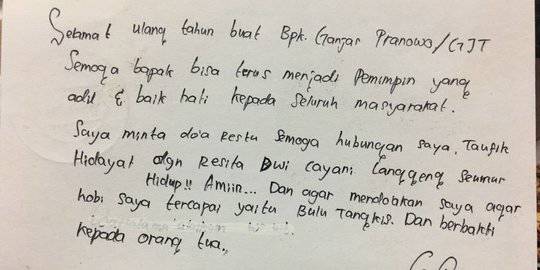 Selamat ulang tahun buat Bpk. Ganjar Pranowo/GJT
Semoga bapak bisa terus menjadi Pemimpin yang
adil & baik hati kepada seluruh masyarakat.
Saya minta do'a Restu semoga hubungan saya, Taufik
Hidayat dgn Resita Dwi cayani Langgeng seumur
Hidup!! Amiin... Dan agar mendo'akan saya agar
hobi saya tercapai yaitu Bulu Tangkis. Dan berbakti
kepada orang tua.,